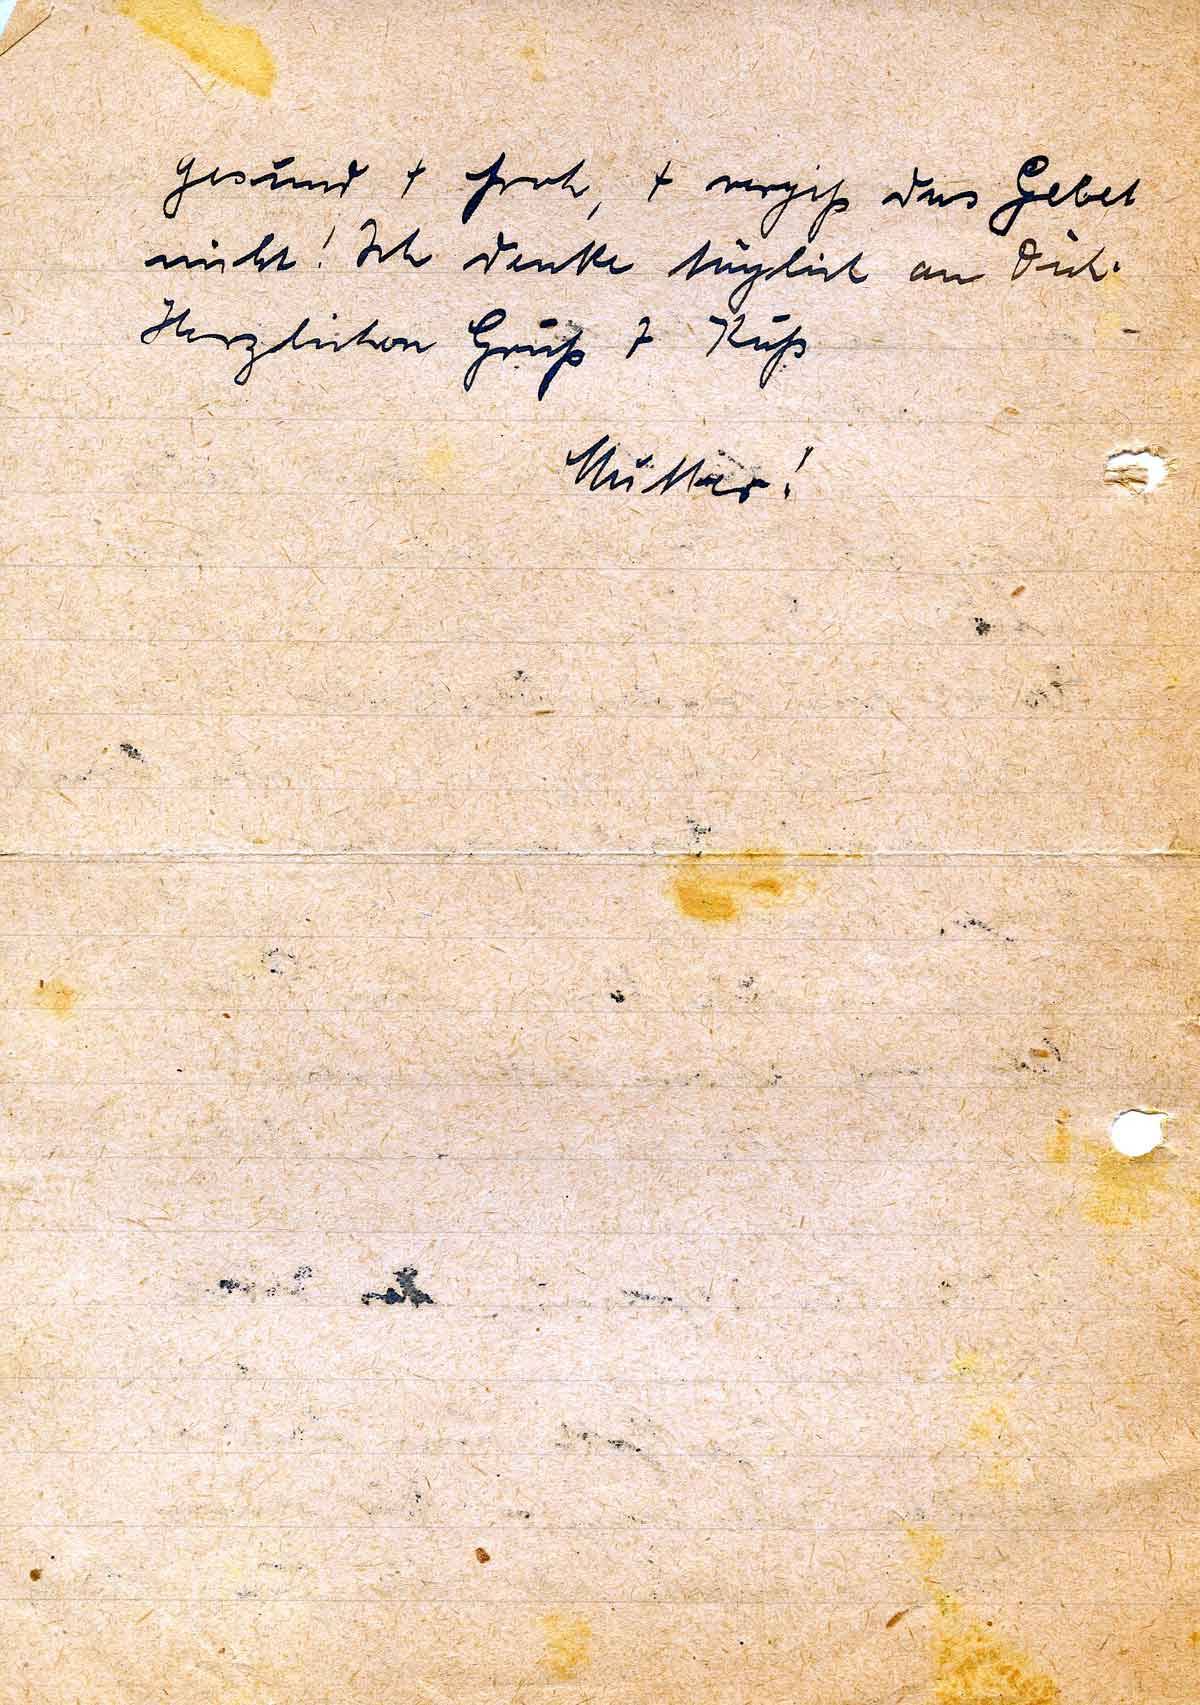 gesund + froh, + vergiß das Gebet
nicht! Ich denke täglich an Dich.
Herzlichen Gruß + Kuß
Mutter!